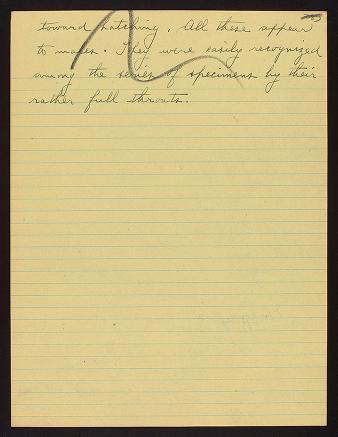 toward hatching. All these appear
to males. They were easily recognized
among the series of specimens by their
rather full throats.